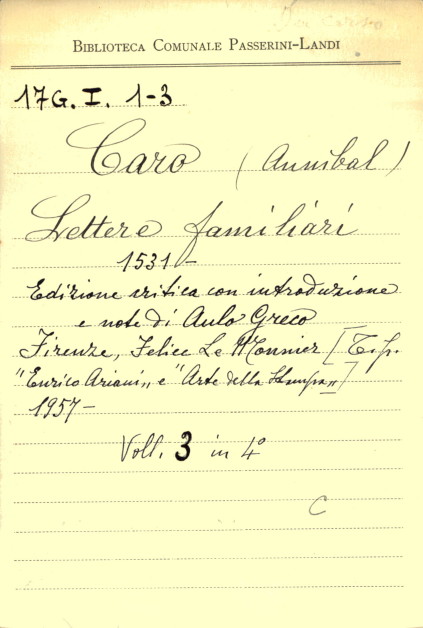 In Corso
BIBLIOTECA COMUNALE PASSERINI-LANDI
17G. I. 1-3
Caro (Annibal)
Lettere familiari
1531-
Edizione critica con introduzione
e note di Aulo Greco
Firenze, Felice Le Monnier [Tip.
"Enrico Ariani" e "Arte della Stampa"]
1957-
Voll. 3 in 4°
C